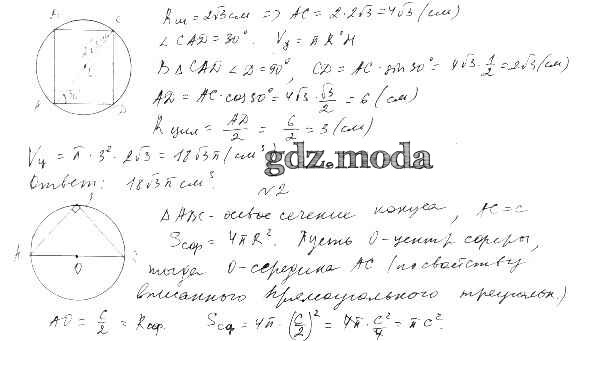 Rш = 2√3 см ⇒ AC = 2·2√3 = 4√3 (см)
∠CAD = 30°. Vц = πR²H
В △CAD ∠D = 90°, CD = AC·sin30° = 4√3·1/2 = 2√3 (см)
AD = AC·cos30° = 4√3·√3/2 = 6 (см)
Rцил = AD/2 = 6/2 = 3 (см)
Vц = π·3²·2√3 = 18√3π (см³)
gdz.moda
Ответ: 18√3π см³.
№2
△ABC - осевое сечение конуса, AC = c
Sсф = 4πR². Пусть O - центр сферы,
тогда O - середина AC (по свойству
вписанного прямоугольного треугольн.)
AO = c/2 = Rсф. Sсф = 4π·(c/2)² = 4π·c²/4 = πc².